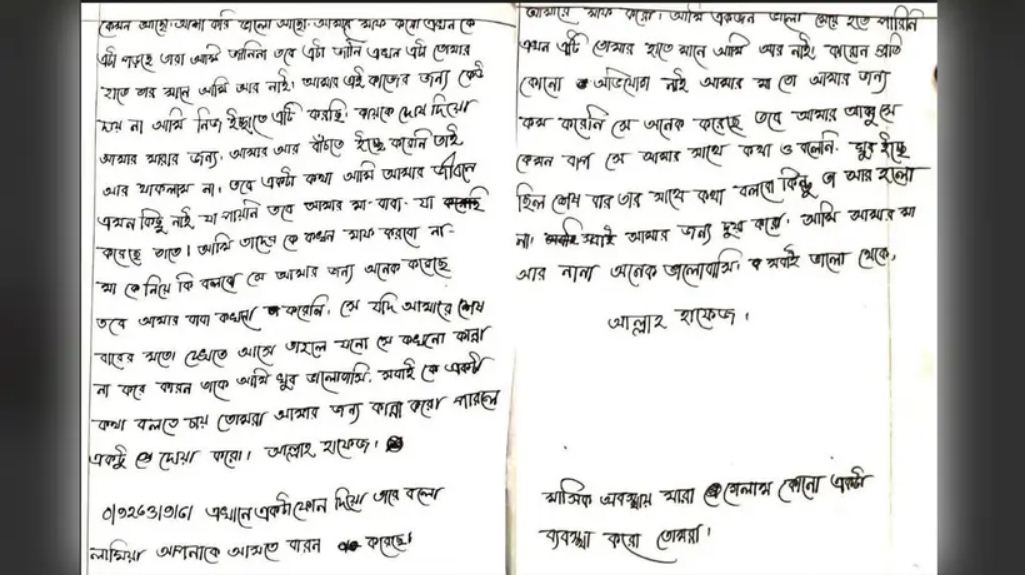 কেমন আছো। আশা করি ভালো আছো। আমারে মাফ করো এখন কে
এটা পড়ছে তারা আমি জানিনা তবে এটা জানি এখন এটা তোমার
হাতে তার মানে আমি আর নাই। আমার এই কাজের জন্য কেউ
দায় না আমি নিজ ইচ্ছাতে এটি করছি। কাউকে দোষ দিয়ো
আমার মরার জন্য। আমার আর বাঁচতে ইচ্ছে করেনি তাই
আর থাকলাম না। তবে একটা কথা আমি আমার জীবনে
এমন কিছু নাই যা পায়নি তবে আমার মা-বাবা যা
করেছে তাতে। আমি তাদের কে কখন মাফ করবো না-
মা কে নিয়ে কি বলবো সে আমার জন্য অনেক করেছে
তবে আমার বাবা কখনো করেনি। সে যদি আমারে শেষ
বারের মতো দেখতে আসে তাহলে যেনো সে কখনো কান্না
না করে কারন তাকে আমি খুব ভালোবাসি। সবাই কে একটা
কথা বলতে চায় তোমরা আমার জন্য কান্না করো পারলে
একটু দোয়া করো। আল্লাহ হাফেজ।
এখানে একটা ফোন দিয়ো তারে বলো
লামিয়া আপনাকে আসতে বারন করেছে।
আমারে মাফ করো। আমি একজন ভালো মেয়ে হতে পারিনি
এখন এটি তোমার হাতে মানে আমি আর নাই। কারোন প্রতি
কোনো অভিযোগ নাই আমার মা তো আমার জন্য
কম করেনি সে অনেক করেছে তবে আমার আব্বু সে
কেমন বাপ সে আমার সাথে কথা ও বলেনি। খুব ইচ্ছে
ছিল শেষ বার তার সাথে কথা বলবো কিন্তু তা আর হলো
না। সবাই আমার জন্য দুয়া করো। আমি আমার মা
আর নানা অনেক ভালোবাসি। সবাই ভালো থেকে,
আল্লাহ হাফেজ।
মাসিক অবস্থায় মারা গেলাম কোনো একটা
ব্যবস্থা করো তোমরা।